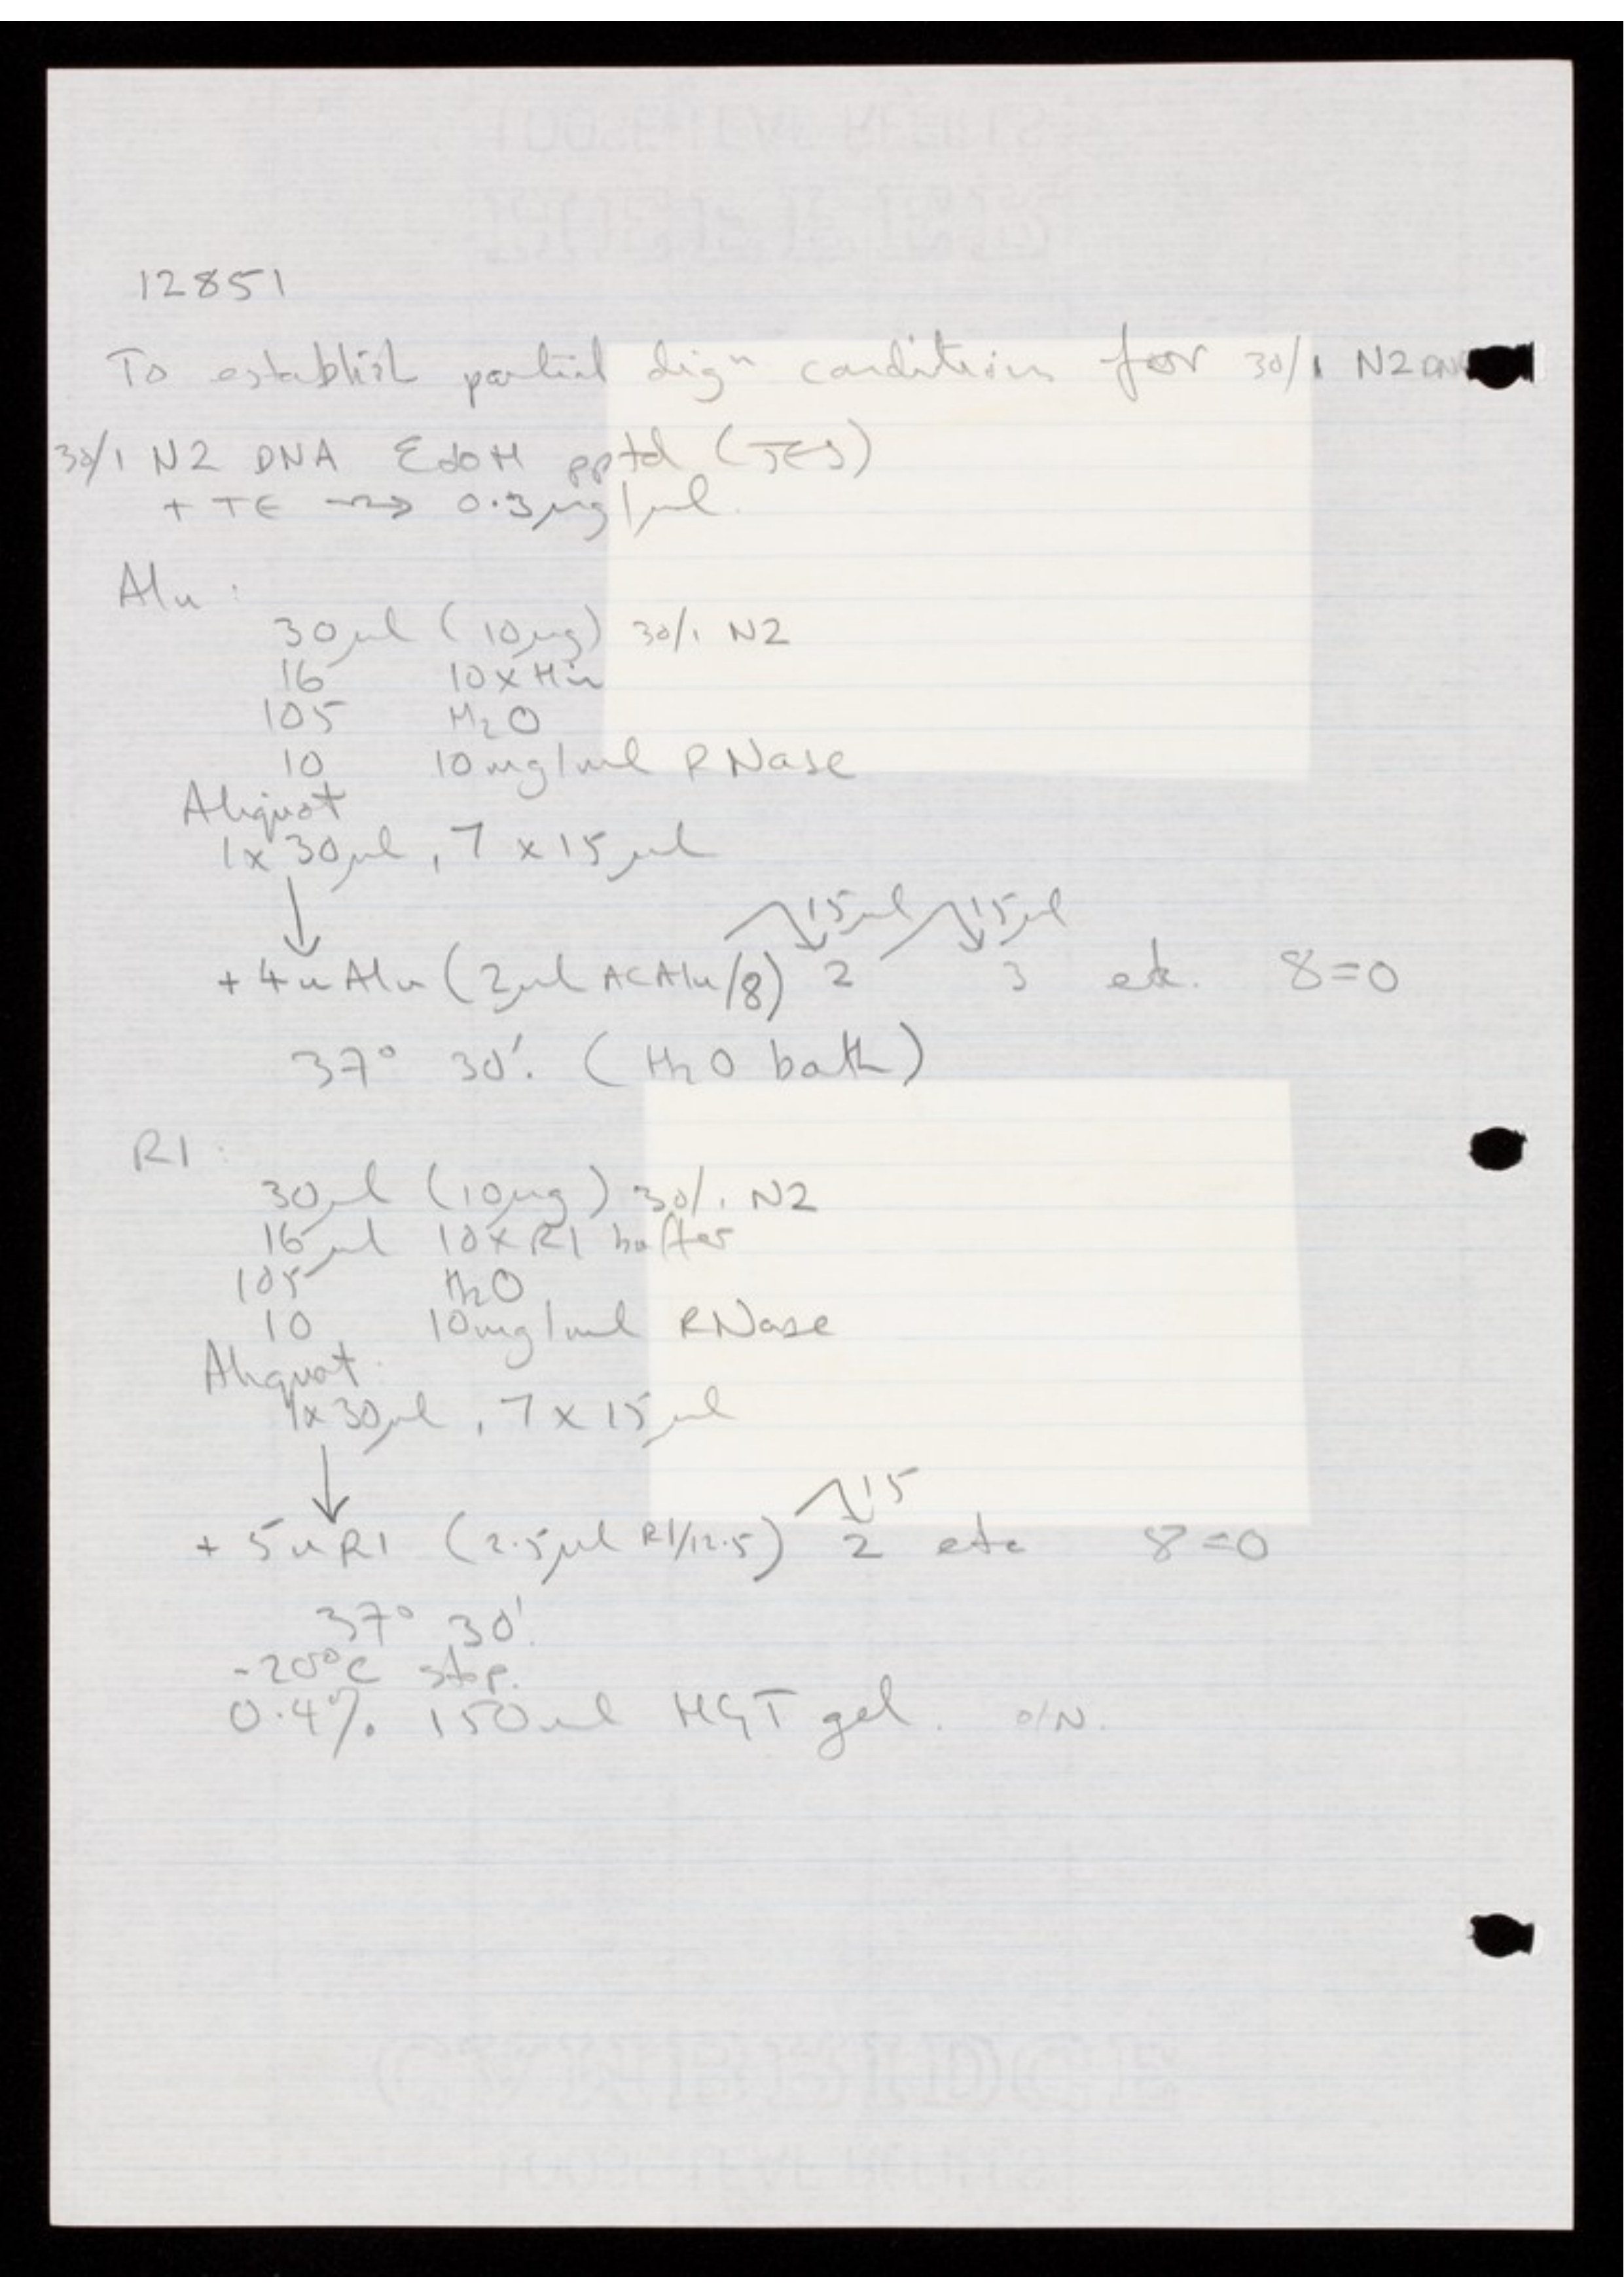 12851
To establish partial dig^n conditions for 30/1 N2 DNA
30/1 N2 DNA EtOH pptd (JES)
+ TE → 0.3 µg/µl.
Alu :
30µl (10µg) 30/1 N2
16 10 x Hin
105 H2O
10 10mg/ml RNase
Aliquot
1x 30µl, 7 x 15µl
15µl 15µl
+ 4u Alu (2µl Alu/8) 2 3 etc. 8=0
37° 30'. (H2O bath)
R1 :
30µl (10µg) 30/1 N2
16µl 10x R1 buffer
105 H2O
10 10mg/ml RNase
Aliquot
1x 30µl, 7 x 15µl
15
+ 5u R1 (2.5µl R1/12.5) 2 etc 8=0
37° 30'.
-20°C stop.
0.4% 150ml HGT gel. o/N.